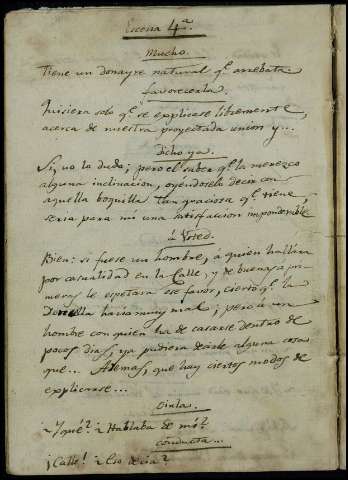 Escena 4ª.
Mucho.
Tiene un donayre natural qᵉ. arrebata.
favorecerla.
Quisiera solo qᵉ. se explicase libremente,
acerca de nuestra proyectada union y...
dicho ya.
Si, no la dudo; pero el saber qᵉ. la merezco
alguna inclinacion, oyéndoselo decir con
aquella boquilla tan graciosa qᵉ. tiene,
seria para mí una satisfaccion imponderable
á Vsted.
Bien: si fuese un hombre, á quien hallara
por casualidad en la Calle, y de buenas a pri-
meras le espetara ese favor, cierto qᵉ. la
Doncella haria muy mal; pero á un
hombre con quien ha de casarse dentro de
pocos dias, ya pudiera decirle alguna cosa
que... Ademas, que hay ciertos modos de
explicarse...
oirla.
¿Y qué? ¿Hablaba de mí?
conducta...
¡Calle! ¿Eso decia?